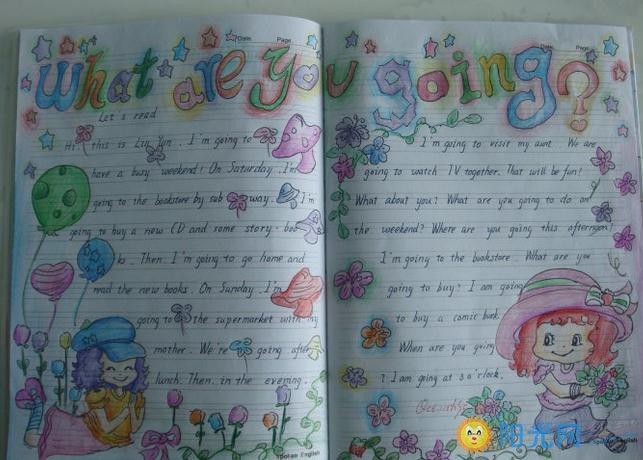 Date Page
what are you going?
Let's read
Hi, this is Liu Yun. I'm going to
have a busy weekend! On Saturday, I'm
going to the bookstore by subway. I'm
going to buy a new CD and some story-boo
ks. Then, I'm going to go home and
read the new books. On Sunday, I'm
going to the supermarket with my
mother. We're going after
lunch. Then, in the evening,
Spoken English
Date Page
I'm going to visit my aunt. We are
going to watch TV together. That will be fun!
What about you? What are you going to do on
the weekend? Where are you going this afternoon?
I'm going to the bookstore. What are you
going to buy? I am going
to buy a comic book.
When are you going
? I am going at 3 o'clock.
阳光网
English